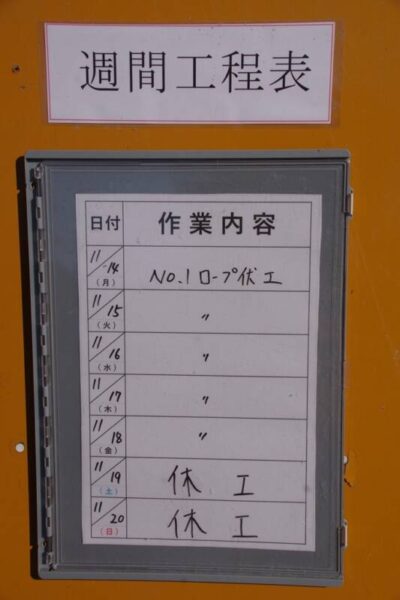 週間工程表
日付 作業内容
11/14 (月) No.1 ロープ伏工
11/15 (火) 〃
11/16 (水) 〃
11/17 (木) 〃
11/18 (金) 〃
11/19 (土) 休工
11/20 (日) 休工